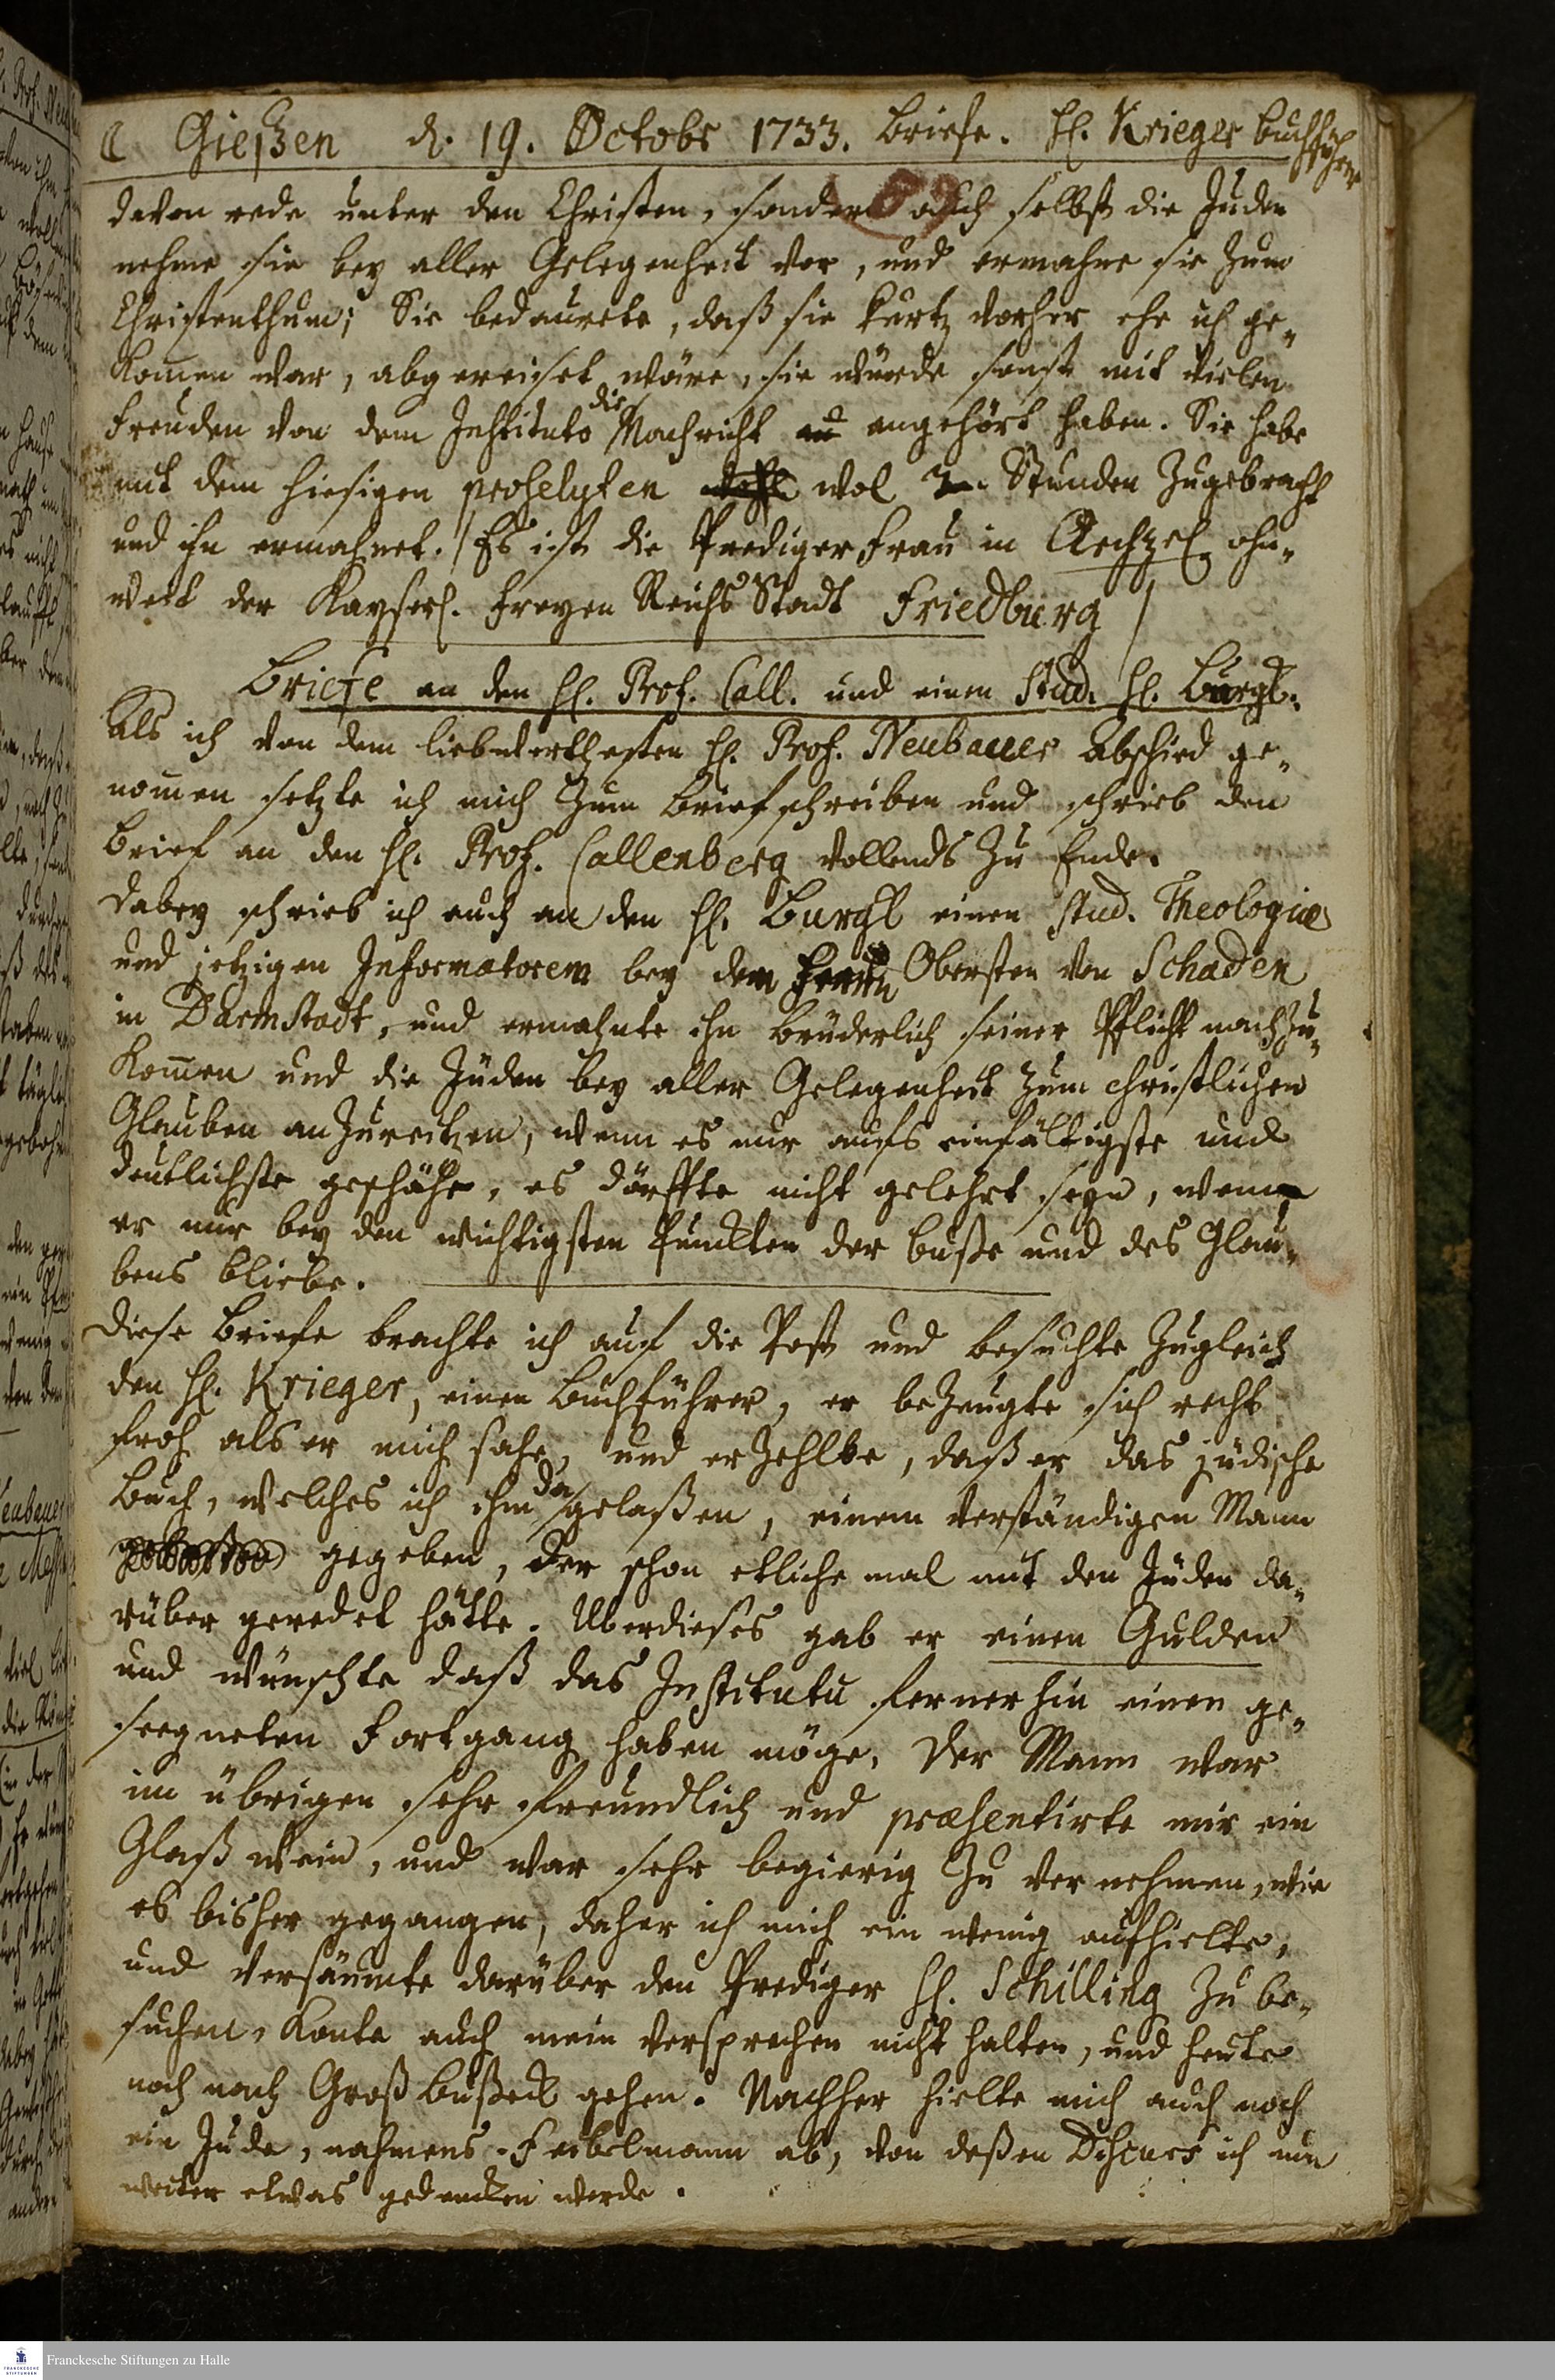 ☾ Gießen d. 19. Octobr 1733. Briefe. H. Krieger Buchführer
davon rede unter den Christen, sondern auch selbst die Juden
nehme sie bey aller Gelegenheit vor, und ermahne sie zum
Christenthum; Sie bedaurete, daß sie kurtz vorher ehe ich ge-
kom̅en war, abgereiset wäre, sie würde sonst mit vielen
Freuden von dem Instituto die Nachricht angehört haben. Sie habe
mit dem hiesigen proselyten wol 2. Stunden zugebracht
und ihn ermahnet. /Es ist die Prediger Frau in Aechzel ohn-
weit der Kayserl. freyen Reichs Stadt Friedburg/
Briefe an den H. Prof. Call. und einen Stud. H. Burgk.
Als ich von dem liebwerthesten H. Prof. Neubauer Abschied ge-
nom̅en setzte ich mich zum Briefschreiben und schrieb den
Brief an den H. Prof. Callenberg vollends zu Ende.
Dabey schrieb ich auch an den H. Burgk einen Stud. Theologiæ
und jetzigen Informatorem bey dem Obersten von Schaden
in Darmstadt, und ermahnte ihn brüderlich seiner Pflicht nachzu-
kom̅en und die Juden bey aller Gelegenheit zum christlichen
Glauben anzureitzen, wenn es nur aufs einfältigste und
deutlichste geschähe, es dörffte nicht gelehrt seyn, wenn
er nur bey den wichtigsten Punckten der Buße und des Glau-
bens bliebe.
Diese Briefe brachte ich auf die Post und besuchte zugleich
den H. Krieger, einen Buchführer, er bezeugte sich recht
froh als er mich sahe, und erzehlte, daß er das jüdische
Buch, welches ich ihm da gelaßen, einem verständigen Mann
gegeben, der schon etliche mal mit den Juden da-
rüber geredet hätte. Uberdieses gab er einen Gulden
und wünschte daß das Institutu fernerhin einen ge-
seegneten Fortgang haben möge. Der Mann war
im übrigen sehr freundlich und præsentirte mir ein
Glaß Wein, und war sehr begierig zu vernehmen, wie
es bisher gegangen, daher ich mich ein wenig aufhielte,
und versäumte darüber den Prediger H. Schilling zu be-
suchen, konte auch mein Versprechen nicht halten, und heute
noch nach Großbußeck gehen. Nachher hielte mich auch noch
ein Jude, nahmens Feibelmann ab, von deßen Discurs ich nun
weiter etwas gedencken werde.
Franckesche Stiftungen zu Halle